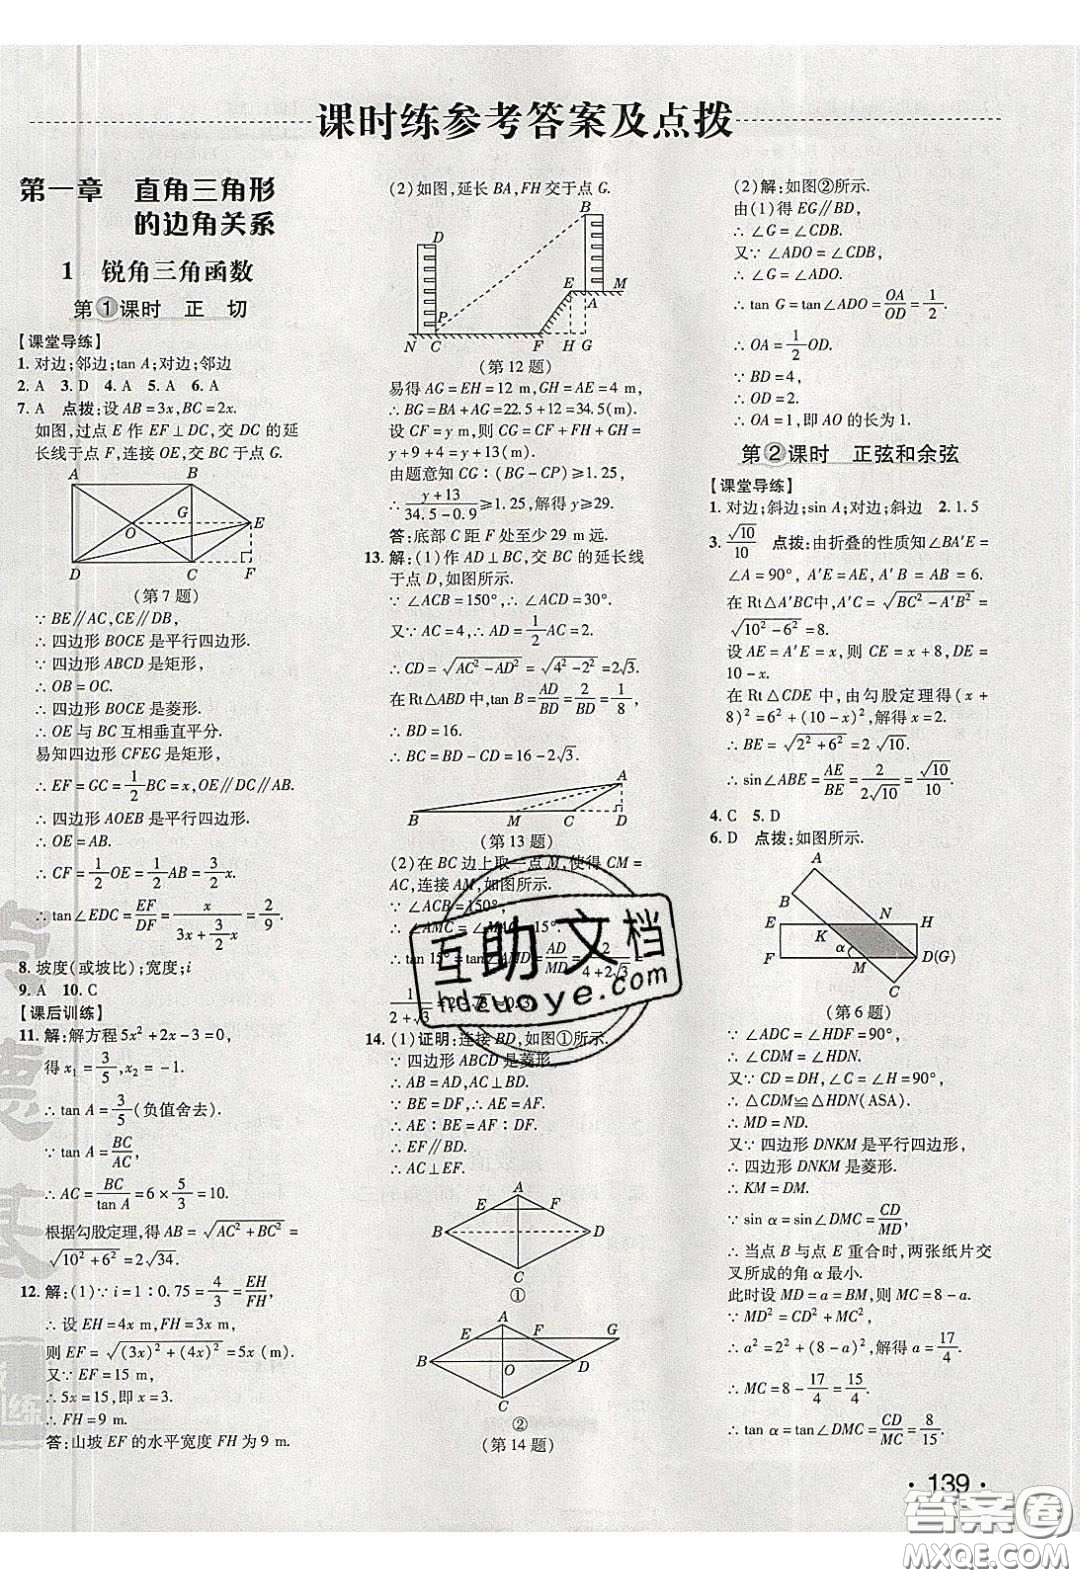 课时练参考答案及点拨
第一章 直角三角形
的边角关系
1 锐角三角函数
第①课时 正 切
【课堂导练】
1. 对边;邻边;tan A;对边;邻边
2. A 3. D 4. A 5. A 6. A
7. A 点拨:设 AB=3x,BC=2x.
如图,过点 E 作 EF⊥DC,交 DC 的延
长线于点 F,连接 OE,交 BC 于点 G.
A B G E O D C F
(第 7 题)
∵BE∥AC,CE∥DB,
∴四边形 BOCE 是平行四边形.
∵四边形 ABCD 是矩形,
∴OB=OC.
∴四边形 BOCE 是菱形.
∴OE 与 BC 互相垂直平分.
易知四边形 CFEG 是矩形,
∴EF=GC=1/2 BC=x,OE∥DC∥AB.
∴四边形 AOEB 是平行四边形.
∴OE=AB.
∴CF=1/2 OE=1/2 AB=3/2 x.
∴tan∠EDC=EF/DF=x/(3x+3/2 x)=2/9.
8. 坡度(或坡比);宽度;i
9. A 10. C
【课后训练】
11. 解:解方程5x²+2x-3=0,
得 x₁=3/5,x₂=-1.
∴tan A=3/5(负值舍去).
∵tan A=BC/AC,
∴AC=BC/tan A=6×5/3=10.
根据勾股定理,得 AB=√(AC²+BC²)=
√(10²+6²)=2√34.
12. 解:(1)∵i=1∶0.75=4/3=EH/FH,
∴设 EH=4x m,FH=3x m,
则 EF=√((3x)²+(4x)²)=5x(m).
又∵EF=15 m,
∴5x=15,即 x=3.
∴FH=9 m.
答:山坡 EF 的水平宽度 FH 为 9 m.
(2)如图,延长 BA,FH 交于点 G.
B D E M A P N C F H G
(第 12 题)
易得 AG=EH=12 m,GH=AE=4 m,
∴BG=BA+AG=22.5+12=34.5(m).
设 CF=y m,则 CG=CF+FH+GH=
y+9+4=y+13(m).
由题意知 CG∶(BG-CP)≥1,
∴(y+13)/(34.5-0.9)≥1.25,解得 y≥29.
答:底部 C 距 F 处至少 29 m 远.
13. 解:(1)作 AD⊥BC,交 BC 的延长线
于点 D,如图所示.
∵∠ACB=150°,∴∠ACD=30°.
又∵AC=4,∴AD=1/2 AC=2.
∴CD=√(AC²-AD²)=√(4²-2²)=2√3.
在 Rt△ABD 中,tan B=AD/BD=2/BD=1/8,
∴BD=16.
∴BC=BD-CD=16-2√3.
A B M C D
(第 13 题)
(2)在 BC 边上取一点 M,使得 CM=
AC,连接 AM,如图所示.
∵∠ACB=150°,
∴∠AMC=∠MAC=15°.
∴tan 15°=tan∠AMD=AD/MD=2/(4+2√3)=
1/(2+√3)=2-√3≈0.3.
14. (1)证明:连接 BD,如图①所示.
∵四边形 ABCD 是菱形,
∴AB=AD,AC⊥BD.
∵BE=DF,∴AE=AF.
∴AE∶BE=AF∶DF.
∴EF∥BD.
∴AC⊥EF.
A E F B D C
①
A E F G B O D C
②
(第 14 题)
(2)解:如图②所示.
由(1)得 EG∥BD,
∴∠G=∠CDB.
又∵∠ADO=∠CDB,
∴∠G=∠ADO.
∴tan G=tan∠ADO=OA/OD=1/2.
∴OA=1/2 OD.
∵BD=4,
∴OD=2.
∴OA=1,即 AO 的长为 1.
第②课时 正弦和余弦
【课堂导练】
1. 对边;斜边;sin A;对边;斜边 2. 1.5
3. √10/10 点拨:由折叠的性质知∠BA′E=
∠A=90°,A′E=AE,A′B=AB=6.
在 Rt△A′BC中,A′C=√(BC²-A′B²)=
√(10²-6²)=8.
设 AE=A′E=x,则 CE=x+8,DE=
10-x.
在 Rt△CDE 中,由勾股定理得(x+
8)²=6²+(10-x)²,解得x=2.
∴BE=√(2²+6²)=2√10.
∴sin∠ABE=AE/BE=2/(2√10)=√10/10.
4. C 5. D
6. D 点拨:如图所示.
A B E N H K α F M D(G) C
(第 6 题)
∵∠ADC=∠HDF=90°,
∴∠CDM=∠HDN.
又∵CD=DH,∠H=∠C=90°,
∴△CDM≌△HDN(ASA).
∴MD=ND.
又∵四边形 DNKM 是平行四边形,
∴四边形 DNKM 是菱形.
∴KM=DM.
∵sin α=sin∠DMC=CD/MD,
∴当点 B 与点 E 重合时,两张纸片交
叉所成的角 α 最小.
此时设 MD=a=BM,则 MC=8-a.
∵MD²=CD²+MC²,
∴a²=2²+(8-a)²,解得a=17/4.
∴MC=8-17/4=15/4.
∴tan α=tan∠DMC=CD/MC=8/15.
· 139 ·
互助文档
hdzuoye.com
答案卷
MXQE.COM